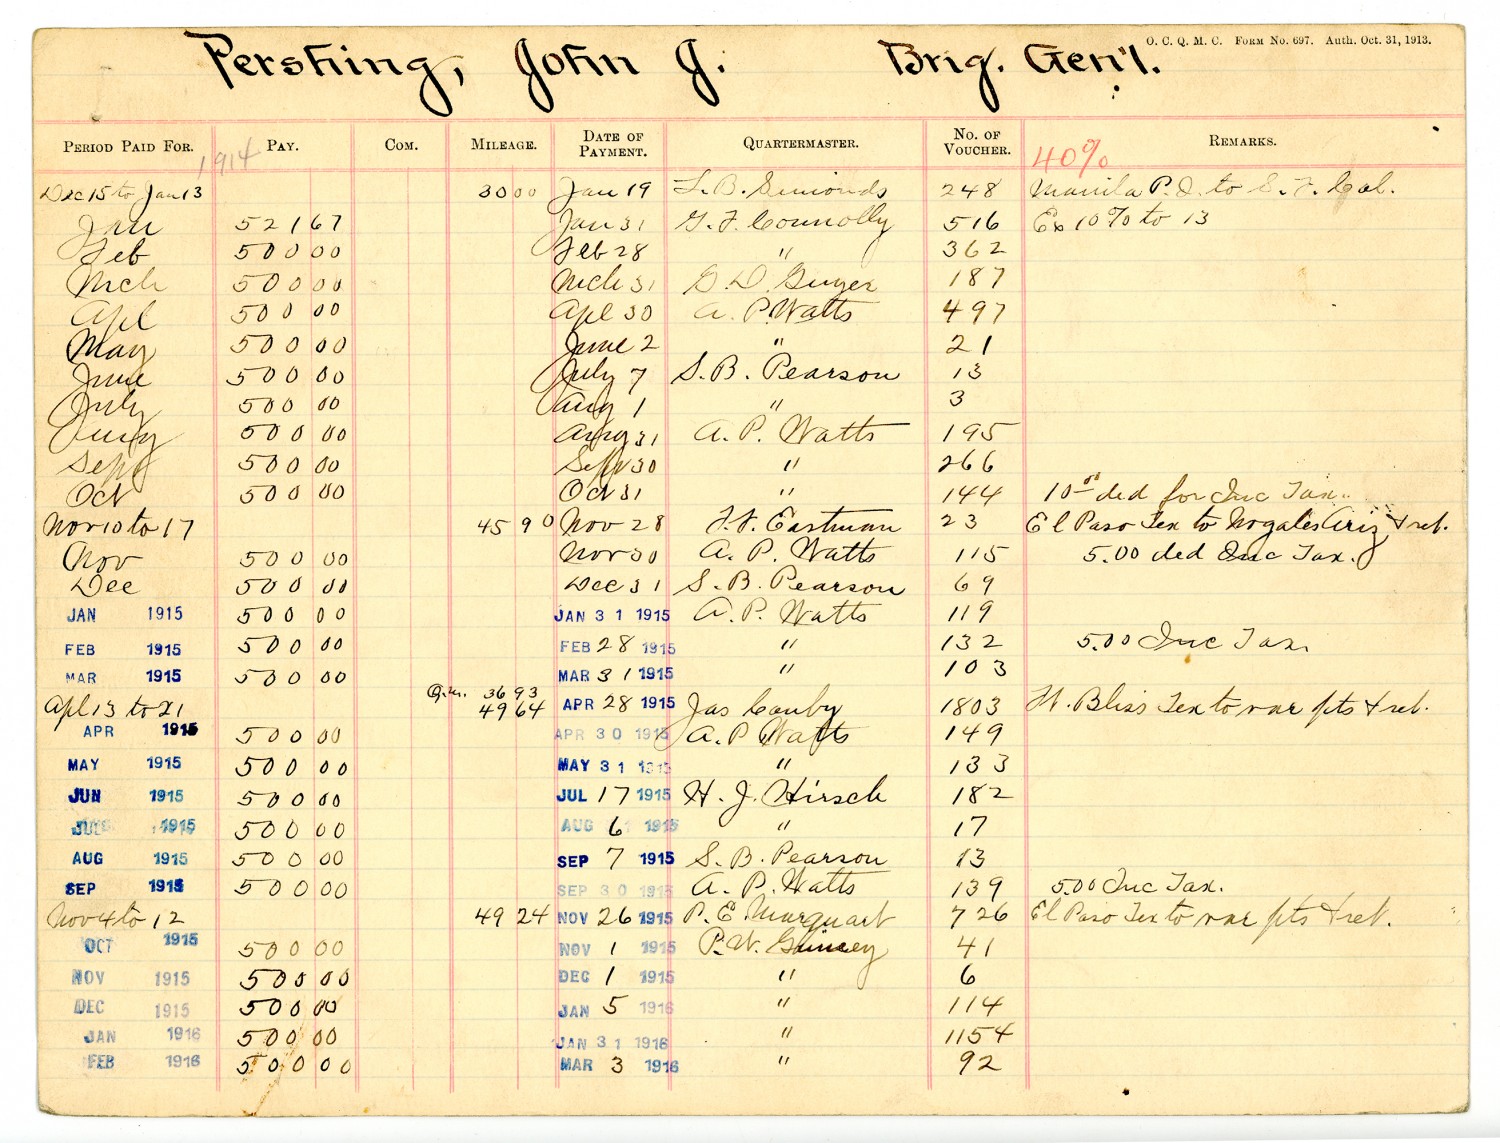 O. C. Q. M. C. Form No. 697. Auth. Oct. 31, 1913.
Pershing, John J. Brig. Gen'l.
Period Paid For. 1914 Pay. Com. Mileage. Date of Payment. Quartermaster. No. of Voucher. 40% Remarks.
Dec 15 to Jan 13 30 00 Jan 19 L. B. Simonds 248 Manila P. I. to S. F. Cal.
Jan 521 67 Jan 31 G. F. Connolly 516 Ex 10% to 13
Feb 500 00 Feb 28 " 362
Mch 500 00 Mch 31 G. D. Guyer 187
Apl 500 00 Apl 30 A. P. Watts 497
May 500 00 June 2 " 21
June 500 00 July 7 S. B. Pearson 13
July 500 00 Aug 1 " 3
Aug 500 00 Aug 31 A. P. Watts 195
Sept 500 00 Sept 30 " 266
Oct 500 00 Oct 31 " 144 10 00 ded for Inc Tax.
Nov 10 to 17 45 90 Nov 28 F. F. Eastman 23 El Paso Tex to Nogales Ariz & ret.
Nov 500 00 Nov 30 A. P. Watts 115 5.00 ded Inc Tax.
Dec 500 00 Dec 31 S. B. Pearson 69
JAN 1915 500 00 JAN 31 1915 A. P. Watts 119
FEB 1915 500 00 FEB 28 1915 " 132 5.00 Inc Tax.
MAR 1915 500 00 MAR 31 1915 " 103
Q.M. 36 93
Apl 13 to 21 49 64 APR 28 1915 Jas Canby 1803 Ft. Bliss Tex to var pts & ret.
APR 1915 500 00 APR 30 1915 A. P. Watts 149
MAY 1915 500 00 MAY 31 1915 " 133
JUN 1915 500 00 JUL 17 1915 H. J. Hirsch 182
JUL 1915 500 00 AUG 6 1915 " 17
AUG 1915 500 00 SEP 7 1915 S. B. Pearson 13
SEP 1915 500 00 SEP 30 1915 A. P. Watts 139 5.00 Inc Tax.
Nov 4 to 12 49 24 NOV 26 1915 P. E. Marquart 726 El Paso Tex to var pts & ret.
OCT 1915 500 00 NOV 1 1915 P. W. Guiney 41
NOV 1915 500 00 DEC 1 1915 " 6
DEC 1915 500 00 JAN 5 1916 " 114
JAN 1916 500 00 JAN 31 1916 " 1154
FEB 1916 500 00 MAR 3 1916 " 92